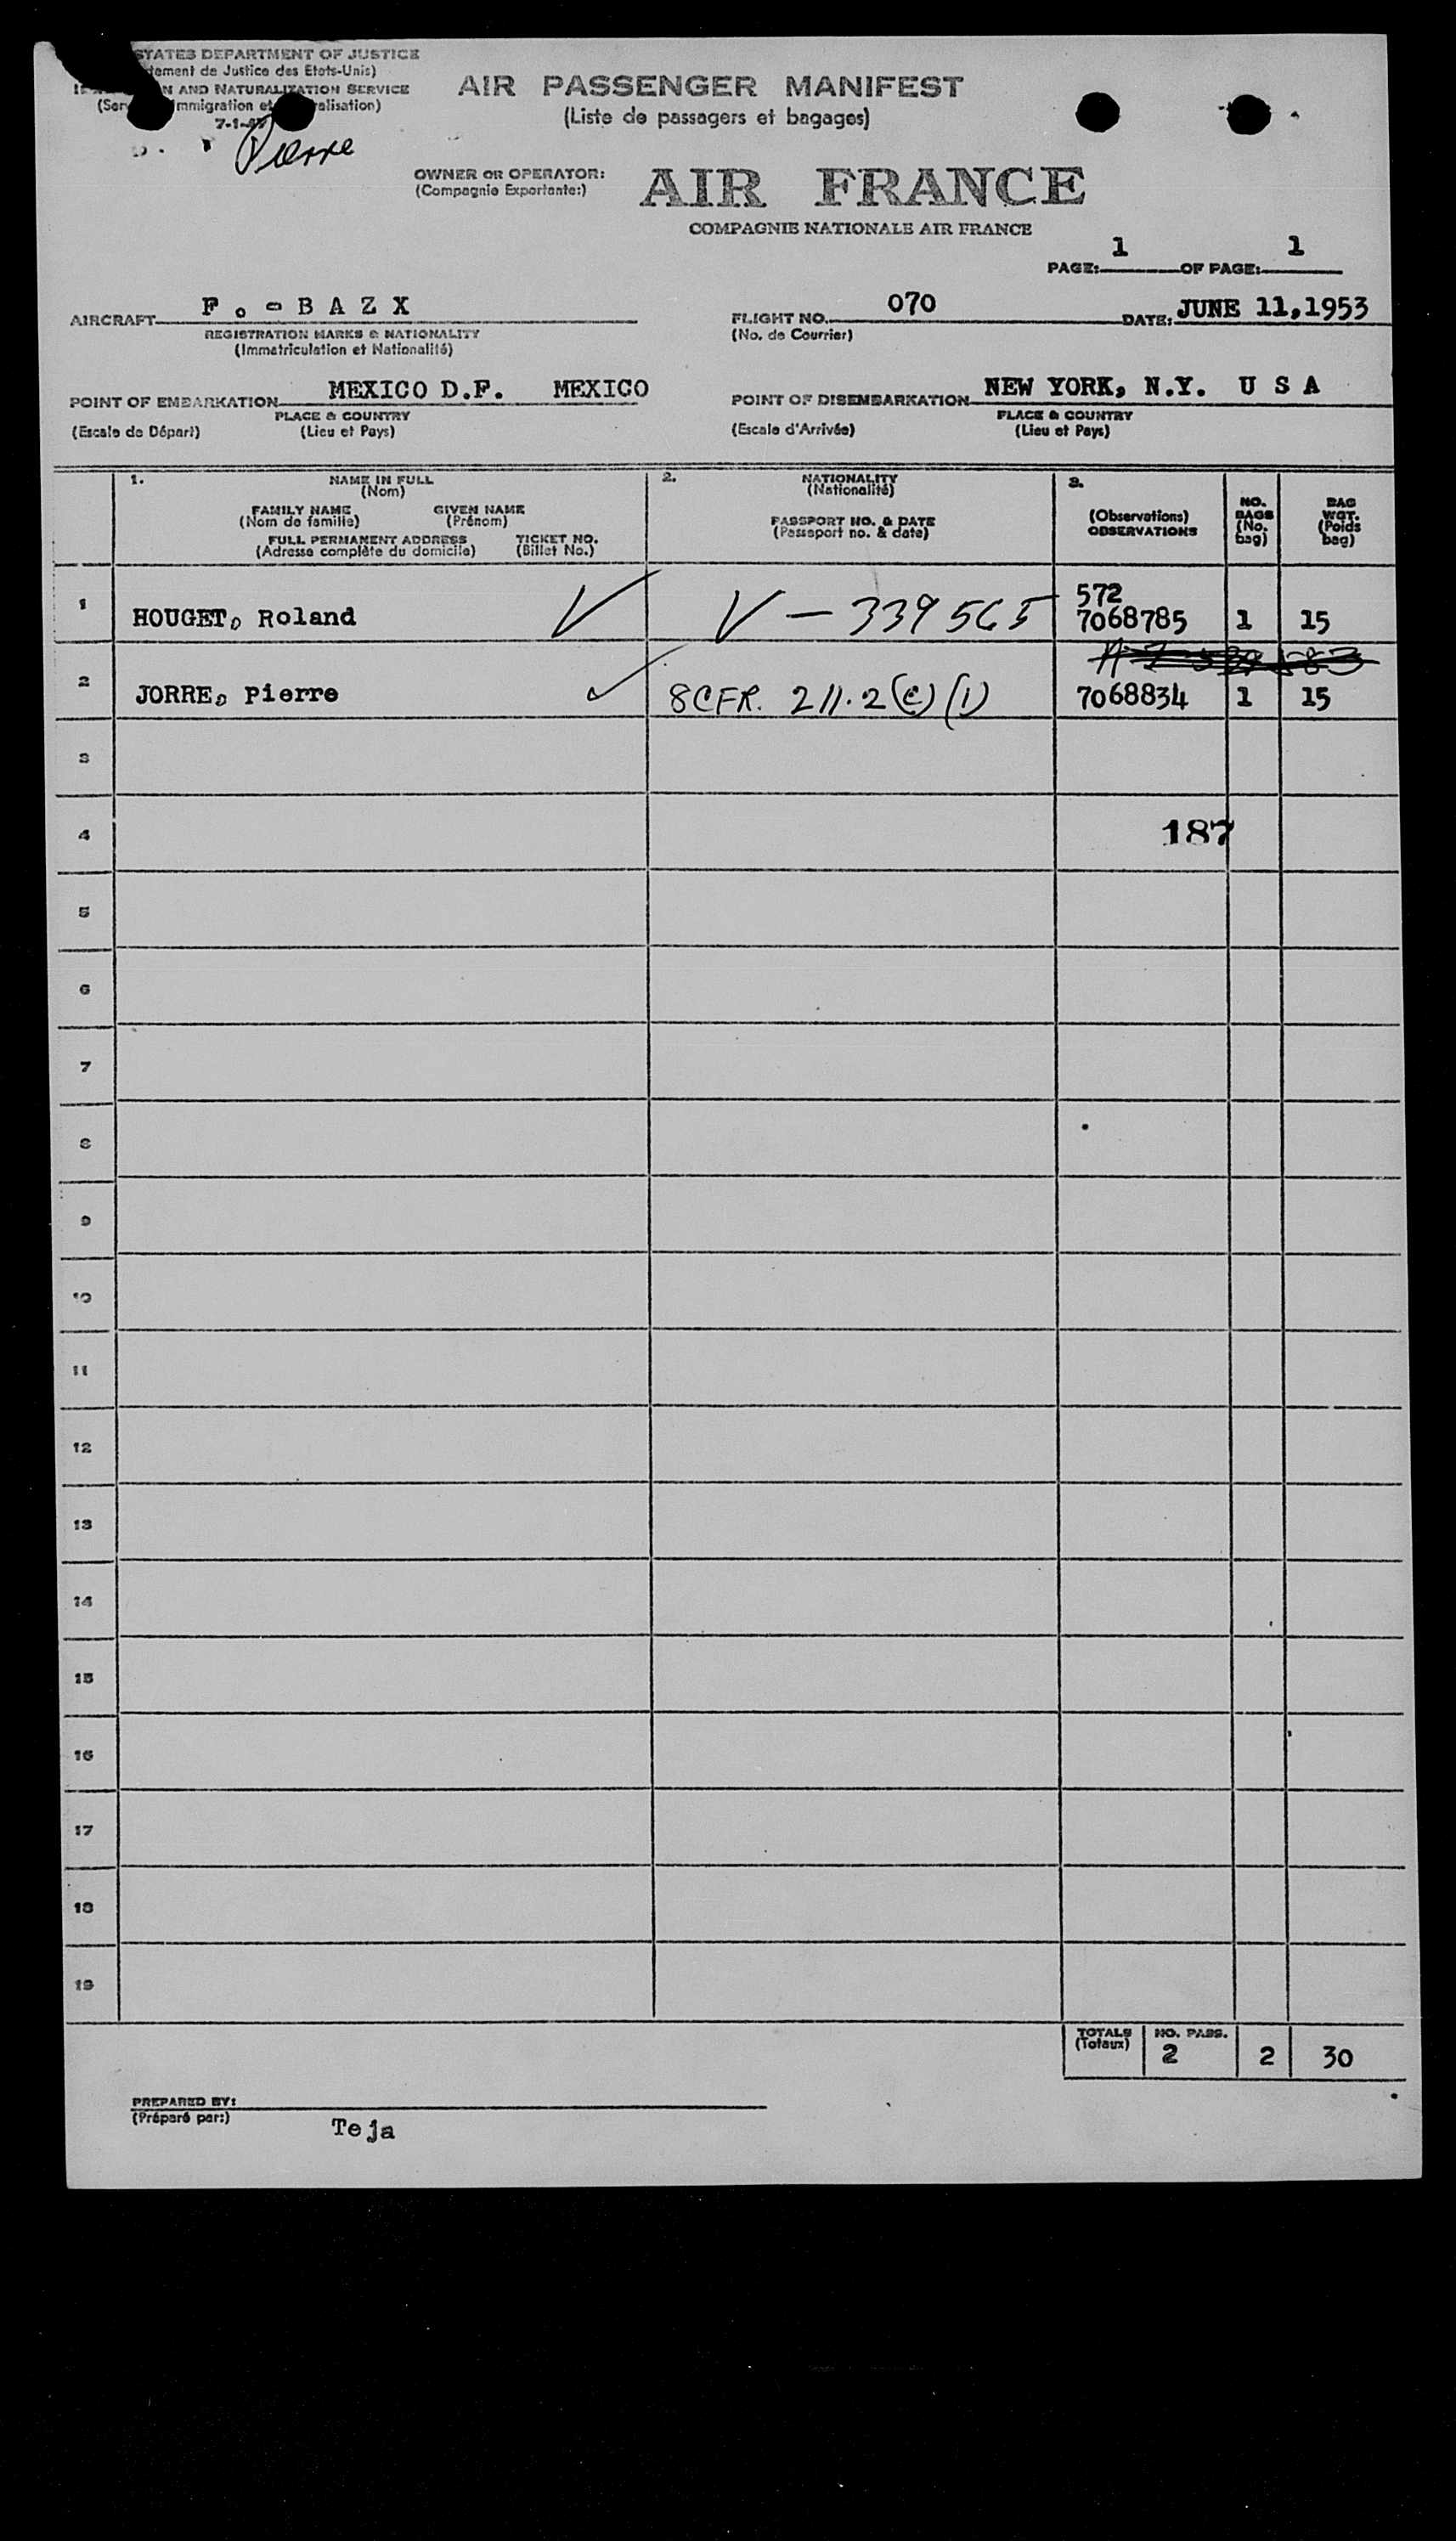 STATES DEPARTMENT OF JUSTICE
de Justice des Etats-Unis)
AND NATURALIZATION SERVICE
7-1-49
Pierre
AIR PASSENGER MANIFEST
(Liste de passagers et bagages)
OWNER OR OPERATOR:
(Compagnie Exportante:)
AIR FRANCE
COMPAGNIE NATIONALE AIR FRANCE
PAGE: 1 OF PAGE: 1
AIRCRAFT F.-BAZX
REGISTRATION MARKS & NATIONALITY
(Immatriculation et Nationalité)
FLIGHT NO. 070 DATE: JUNE 11,1953
(No. de Courrier)
POINT OF EMBARKATION MEXICO D.F. MEXICO
PLACE & COUNTRY
(Escale de Départ) (Lieu et Pays)
POINT OF DISEMBARKATION NEW YORK, N.Y. U S A
PLACE & COUNTRY
(Escale d'Arrivée) (Lieu et Pays)
1. NAME IN FULL
(Nom)
FAMILY NAME GIVEN NAME
(Nom de famille) (Prénom)
FULL PERMANENT ADDRESS TICKET NO.
(Adresse complète du domicile) (Billet No.)
2. NATIONALITY
(Nationalité)
PASSPORT NO. & DATE
(Passeport no. & date)
3.
(Observations)
OBSERVATIONS
NO.
BAGS
(No.
bag)
BAG
WGT.
(Poids
bag)
572
1 HOUGET, Roland V-339565 7068785 1 15
2 JORRE, Pierre 8CFR. 211.2(e)(1) 7068834 1 15
3
4 187
5
6
7
8
9
10
11
12
13
14
15
16
17
18
19
TOTALS NO. PASS.
(Totaux) 2 2 30
PREPARED BY:
(Préparé par:) Teja